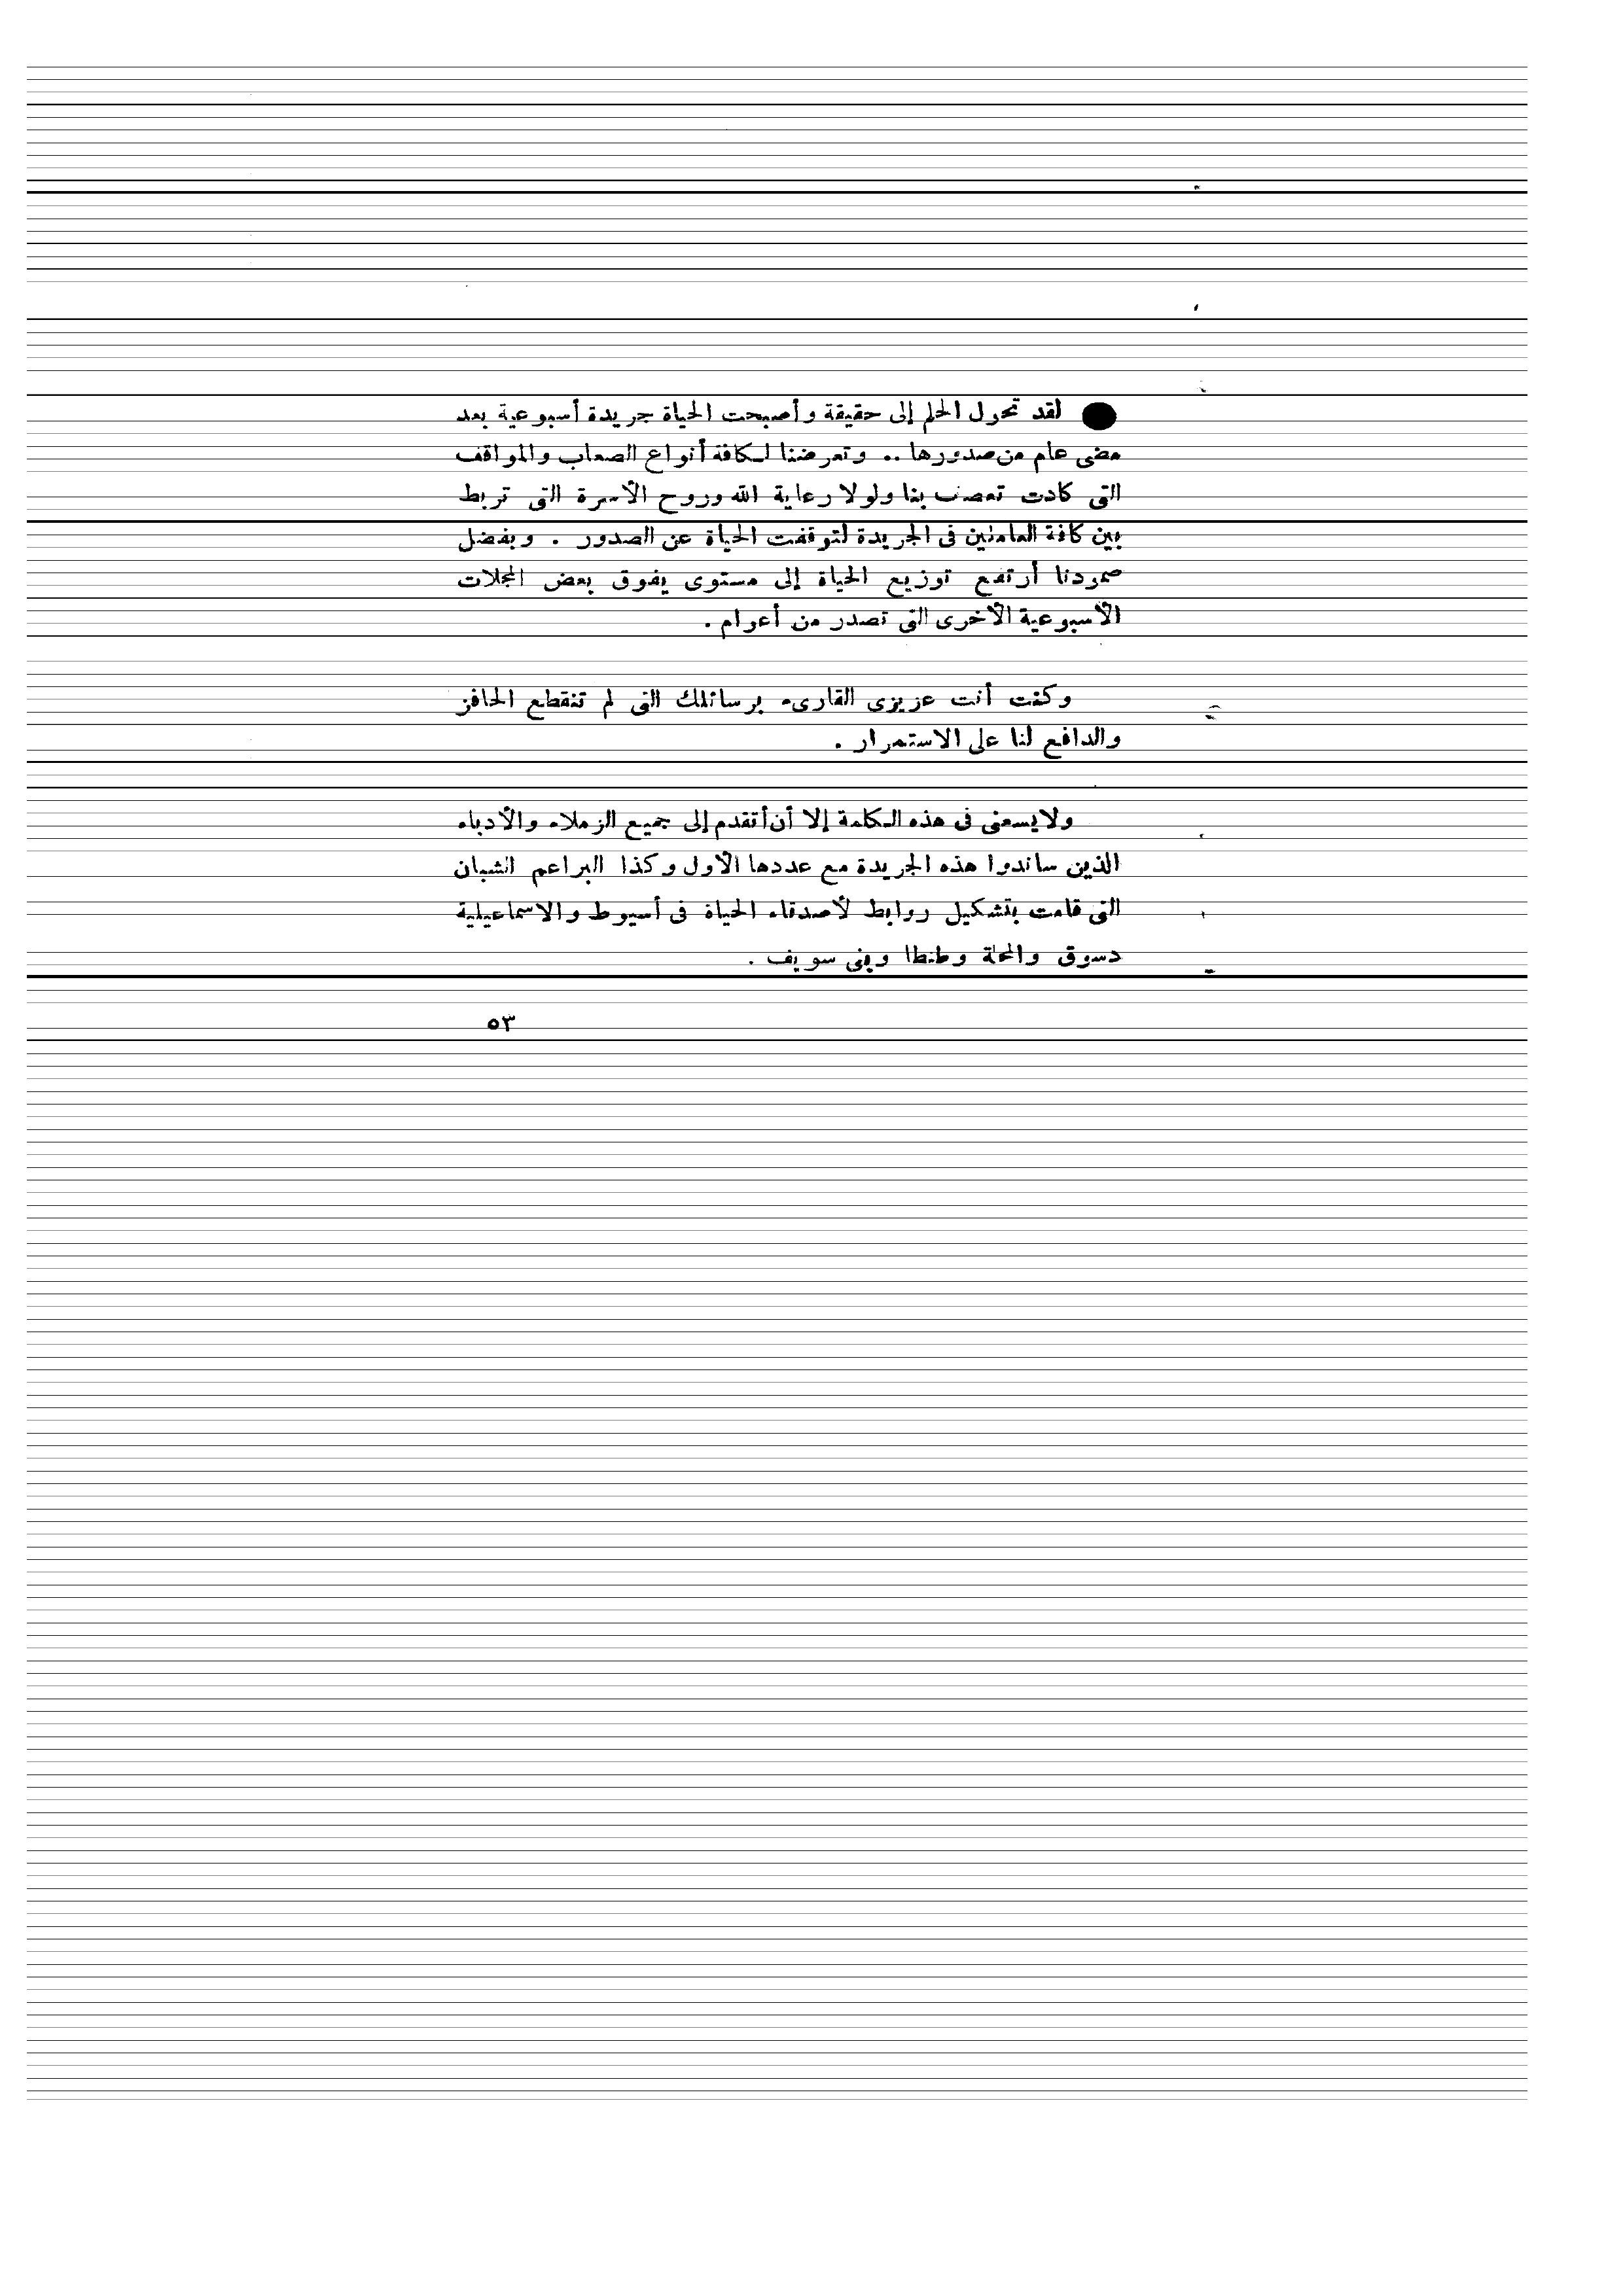 ● لقد تحول الحلم إلى حقيقة وأصبحت الحياة جريدة أسبوعية بعد
مضى عام من صدورها .. وتعرضنا لكافة أنواع الصعاب والمواقف
التى كادت تعصف بنا ولولا رعاية الله وروح الأسرة التى تربط
بين كافة العاملين فى الجريدة لتوقفت الحياة عن الصدور . وبفضل
صمودنا أرتفع توزيع الحياة إلى مستوى يفوق بعض المجلات
الأسبوعية الأخرى التى تصدر من أعوام .
وكنت أنت عزيزى القارىء برسائلك التى لم تنقطع الحافز
والدافع لنا على الاستمرار .
ولا يسعنى فى هذه الكلمة إلا أن أتقدم إلى جميع الزملاء والأدباء
الذين ساندوا هذه الجريدة مع عددها الأول وكذا البراعم الشبان
التى قامت بتشكيل روابط لأصدقاء الحياة فى أسيوط والاسماعيلية
دسوق والمحلة وطنطا وبنى سويف .
٥٣